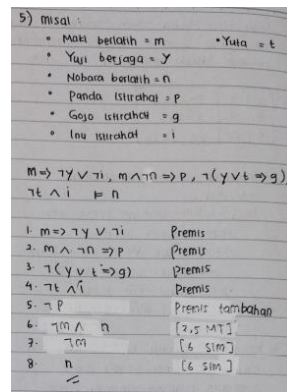 5) misal :
• Maki berlatih = m • Yuta = t
• Yuji berjaga = y
• Nobara berlatih = n
• Panda istirahat = p
• Gojo istirahat = g
• Inu istirahat = i
m => ¬y ∨ ¬i, m ∧ ¬n => p, ¬(y ∨ t => g)
¬t ∧ i ⊨ n
1. m => ¬y ∨ ¬i Premis
2. m ∧ ¬n => p Premis
3. ¬(y ∨ t => g) Premis
4. ¬t ∧ i Premis
5. ¬p Premis tambahan
6. ¬m ∧ n [2,5 MT]
7. ¬m [6 sim]
8. n [6 sim]